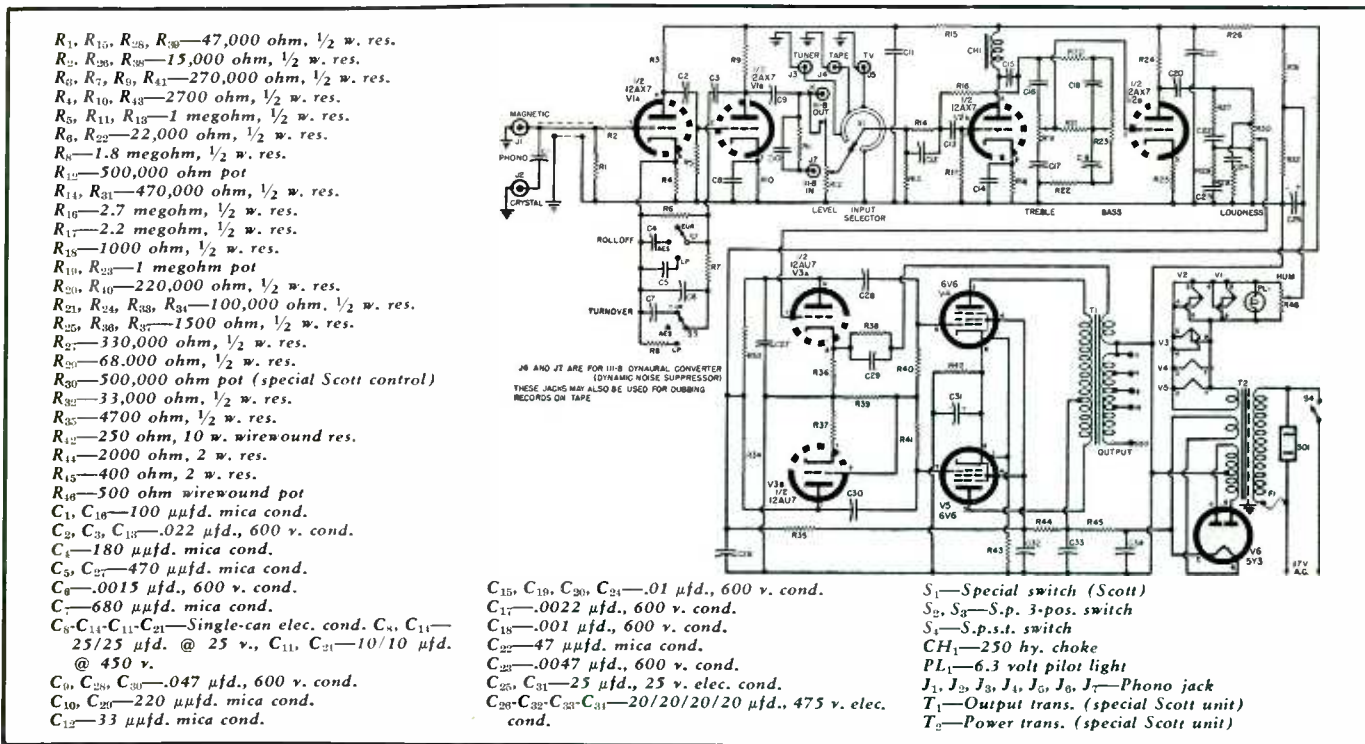 R₁, R₁₅, R₂₈, R₃₉—47,000 ohm, ½ w. res.
R₂, R₂₆, R₃₈—15,000 ohm, ½ w. res.
R₃, R₇, R₉, R₄₁—270,000 ohm, ½ w. res.
R₄, R₁₀, R₄₃—2700 ohm, ½ w. res.
R₅, R₁₁, R₁₃—1 megohm, ½ w. res.
R₆, R₂₂—22,000 ohm, ½ w. res.
R₈—1.8 megohm, ½ w. res.
R₁₂—500,000 ohm pot
R₁₄, R₃₁—470,000 ohm, ½ w. res.
R₁₆—2.7 megohm, ½ w. res.
R₁₇—2.2 megohm, ½ w. res.
R₁₈—1000 ohm, ½ w. res.
R₁₉, R₂₃—1 megohm pot
R₂₀, R₄₀—220,000 ohm, ½ w. res.
R₂₁, R₂₄, R₃₃, R₃₄—100,000 ohm, ½ w. res.
R₂₅, R₃₆, R₃₇—1500 ohm, ½ w. res.
R₂₇—330,000 ohm, ½ w. res.
R₂₉—68.000 ohm, ½ w. res.
R₃₀—500,000 ohm pot (special Scott control)
R₃₂—33,000 ohm, ½ w. res.
R₃₅—4700 ohm, ½ w. res.
R₄₂—250 ohm, 10 w. wirewound res.
R₄₄—2000 ohm, 2 w. res.
R₄₅—400 ohm, 2 w. res.
R₄₆—500 ohm wirewound pot
C₁, C₁₆—100 μμfd. mica cond.
C₂, C₃, C₁₃—.022 μfd., 600 v. cond.
C₄—180 μμfd. mica cond.
C₅, C₂₇—470 μμfd. mica cond.
C₆—.0015 μfd., 600 v. cond.
C₇—680 μμfd. mica cond.
C₈-C₁₄-C₁₁-C₂₁—Single-can elec. cond. C₈, C₁₄—
25/25 μfd. @ 25 v., C₁₁, C₂₁—10/10 μfd.
@ 450 v.
C₉, C₂₈, C₃₀—.047 μfd., 600 v. cond.
C₁₀, C₂₉—220 μμfd. mica cond.
C₁₂—33 μμfd. mica cond.
C₁₅, C₁₉, C₂₀, C₂₄—.01 μfd., 600 v. cond.
C₁₇—.0022 μfd., 600 v. cond.
C₁₈—.001 μfd., 600 v. cond.
C₂₂—47 μμfd. mica cond.
C₂₃—.0047 μfd., 600 v. cond.
C₂₅, C₃₁—25 μfd., 25 v. elec. cond.
C₂₆-C₃₂-C₃₃-C₃₄—20/20/20/20 μfd., 475 v. elec.
cond.
S₁—Special switch (Scott)
S₂, S₃—S.p. 3-pos. switch
S₄—S.p.s.t. switch
CH₁—250 hy. choke
PL₁—6.3 volt pilot light
J₁, J₂, J₃, J₄, J₅, J₆, J₇—Phono jack
T₁—Output trans. (special Scott unit)
T₂—Power trans. (special Scott unit)
MAGNETIC
J1
PHONO
J2
CRYSTAL
R1
R2
R3
1/2
12AX7
V1A
C2
C3
R4
R5
R9
1/2
12AX7
C8
R10
C9
TUNER
J3
TAPE
J4
TV
J5
III-B
OUT
J7
III-B
IN
R12
LEVEL
INPUT
SELECTOR
C11
R15
CH1
C15
R16
1/2
12AX7
R14
C13
R17
C14
C16
C17
R22
TREBLE
C18
R23
BASS
R24
1/2
R25
C20
R26
R27
R30
LOUDNESS
R32
ROLLOFF
R6
C4
AES
EUR
C5
LP
R7
C6
C7
TURNOVER
AES
R8
LP
J6 AND J7 ARE FOR III-B DYNAURAL CONVERTER
(DYNAMIC NOISE SUPPRESSOR)
THESE JACKS MAY ALSO BE USED FOR DUBBING
RECORDS ON TAPE
1/2
12AU7
V3A
C28
R38
C29
R36
R39
R37
R40
R41
V3B
1/2
12AU7
C30
R35
6V6
V4
C31
V5
6V6
R43
C32
R44
C33
R45
C34
T1
OUTPUT
V2
V1
PL1
HUM
R46
V3
V4
V5
T2
S4
SO1
F1
V6
5Y3
117V
A.C.